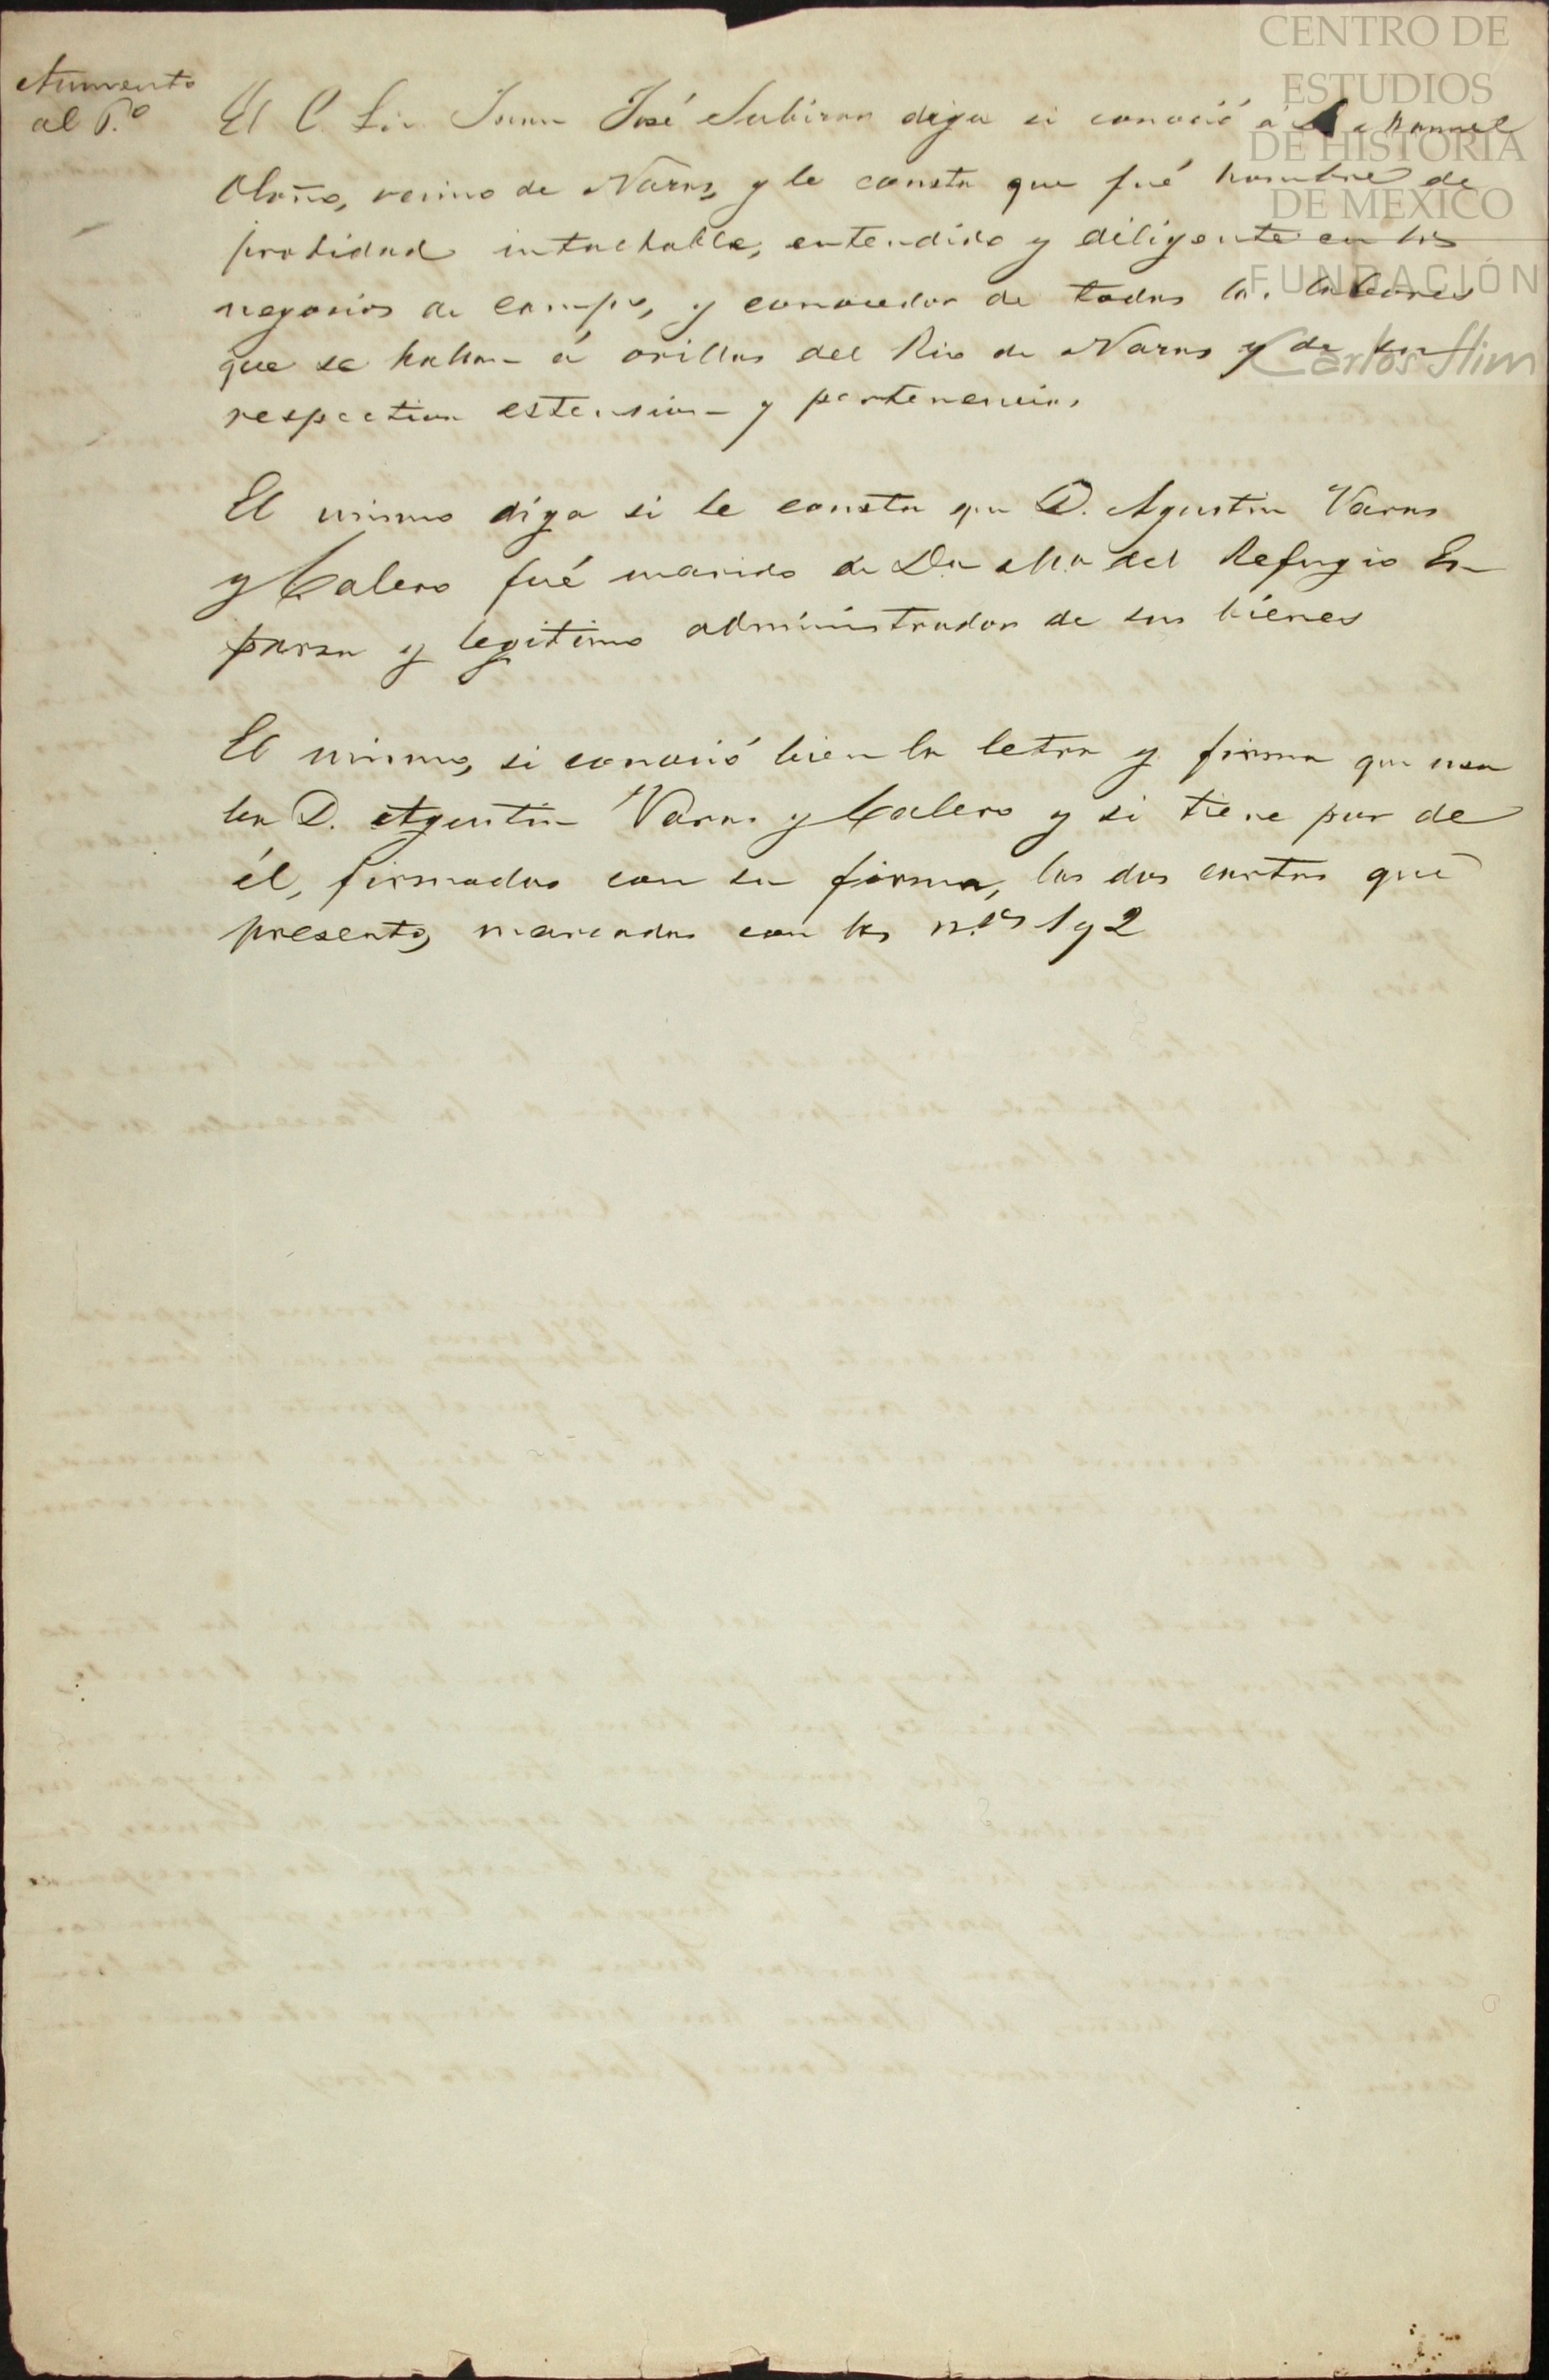 Aumento
al 6.º
El C. Lic. Juan José Subizar diga si conoció á D. Manuel
Olaño, vecino de Naras, y le consta que fué hombre de
probidad intachable, entendido y diligente en los
negocios de campo, y conocedor de todas las labores
que se hallan á orillas del Rio de Naras y de su
respectiva estension y pertenencias
El mismo diga si le consta que D. Agustin Varas
y Calero fué marido de Da Ma del Refugio Es-
parza y legitimo administrador de sus bienes
El mismo, si conoció bien la letra y firma que usa
ba D. Agustin Varas y Calero y si tiene por de
él, firmadas con su firma, las dos cartas que
presento, marcadas con los n.os 1 y 2
CENTRO DE
ESTUDIOS
DE HISTORIA
DE MEXICO
FUNDACIÓN
Carlos Slim